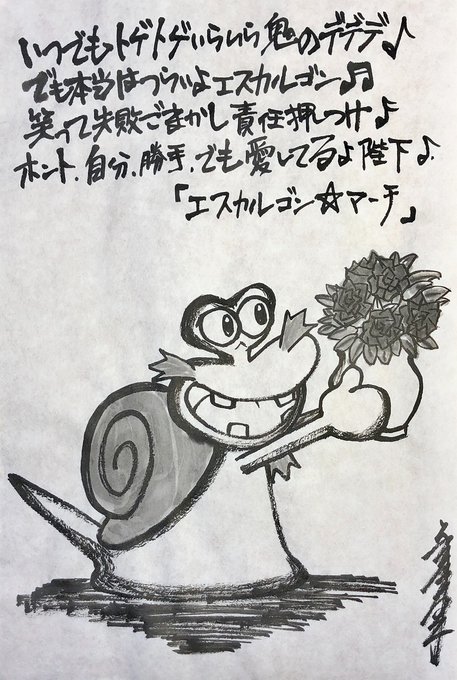 いつでもトゲトゲいらいら鬼のデデデ♪
でも本当はつらいよエスカルゴン♫
笑って失敗ごまかし責任押しつけ♪
ホント、自分、勝手、でも愛してるよ陛下♪
「エスカルゴン☆マーチ」